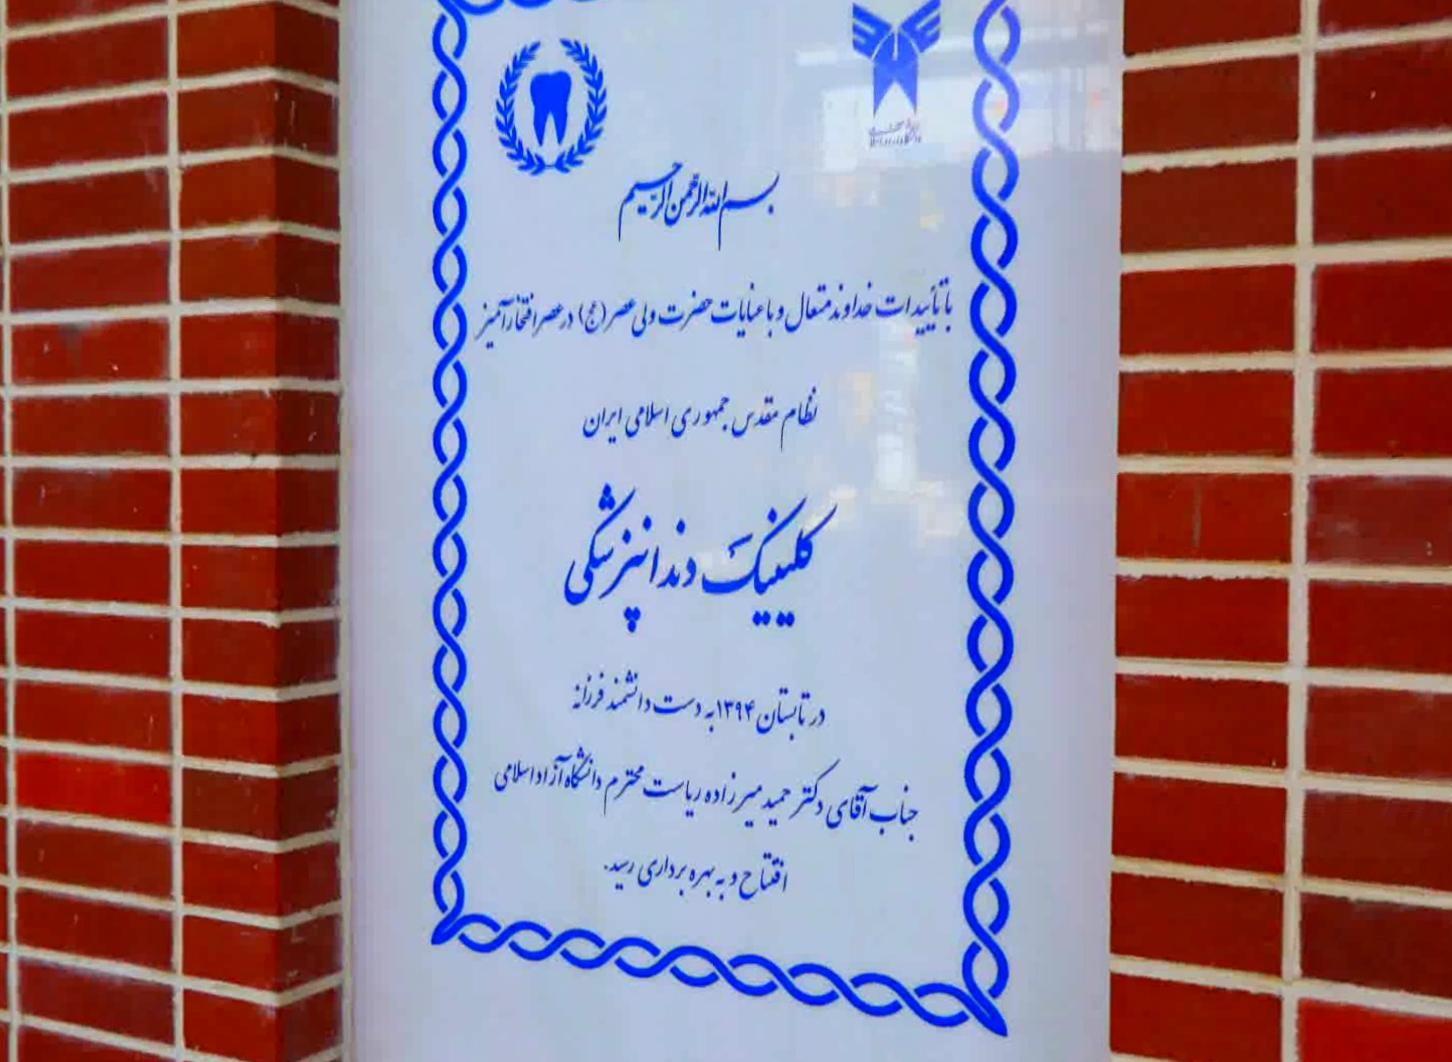 بسم الله الرحمن الرحیم
با تأییدات خداوند متعال و با عنایات حضرت ولی عصر (عج) در عصر افتخارآمیز
نظام مقدس جمهوری اسلامی ایران
کلینیک دندانپزشکی
در تابستان ۱۳۹۴ به دست دانشمند فرزانه
جناب آقای دکتر حمید میرزاده ریاست محترم دانشگاه آزاد اسلامی
افتتاح و به بهره برداری رسید.